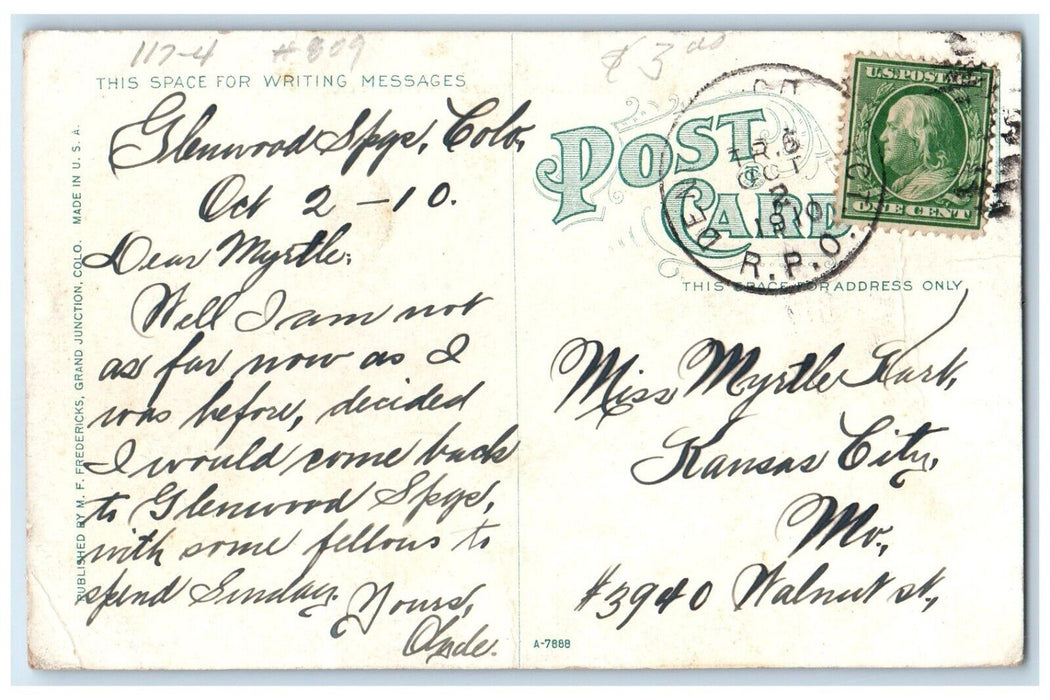 117-4 #809
$3.00
THIS SPACE FOR WRITING MESSAGES
Glenwood Spgs, Colo,
Oct 2 - 10.
Dear Myrtle;
Well I am not
as far now as I
was before, decided
I would come back
to Glenwood Spgs,
with some fellows to
spend Sunday.
Yours,
Clyde.
PUBLISHED BY M. F. FREDERICKS, GRAND JUNCTION, COLO. MADE IN U. S. A.
POST CARD
DEN
TR.
OCT
2
1910
R.P.O.
U.S. POSTAGE
ONE CENT
THIS SPACE FOR ADDRESS ONLY
Miss Myrtle
Kansas City,
Mo.,
#3940 Walnut st.,
A-7888